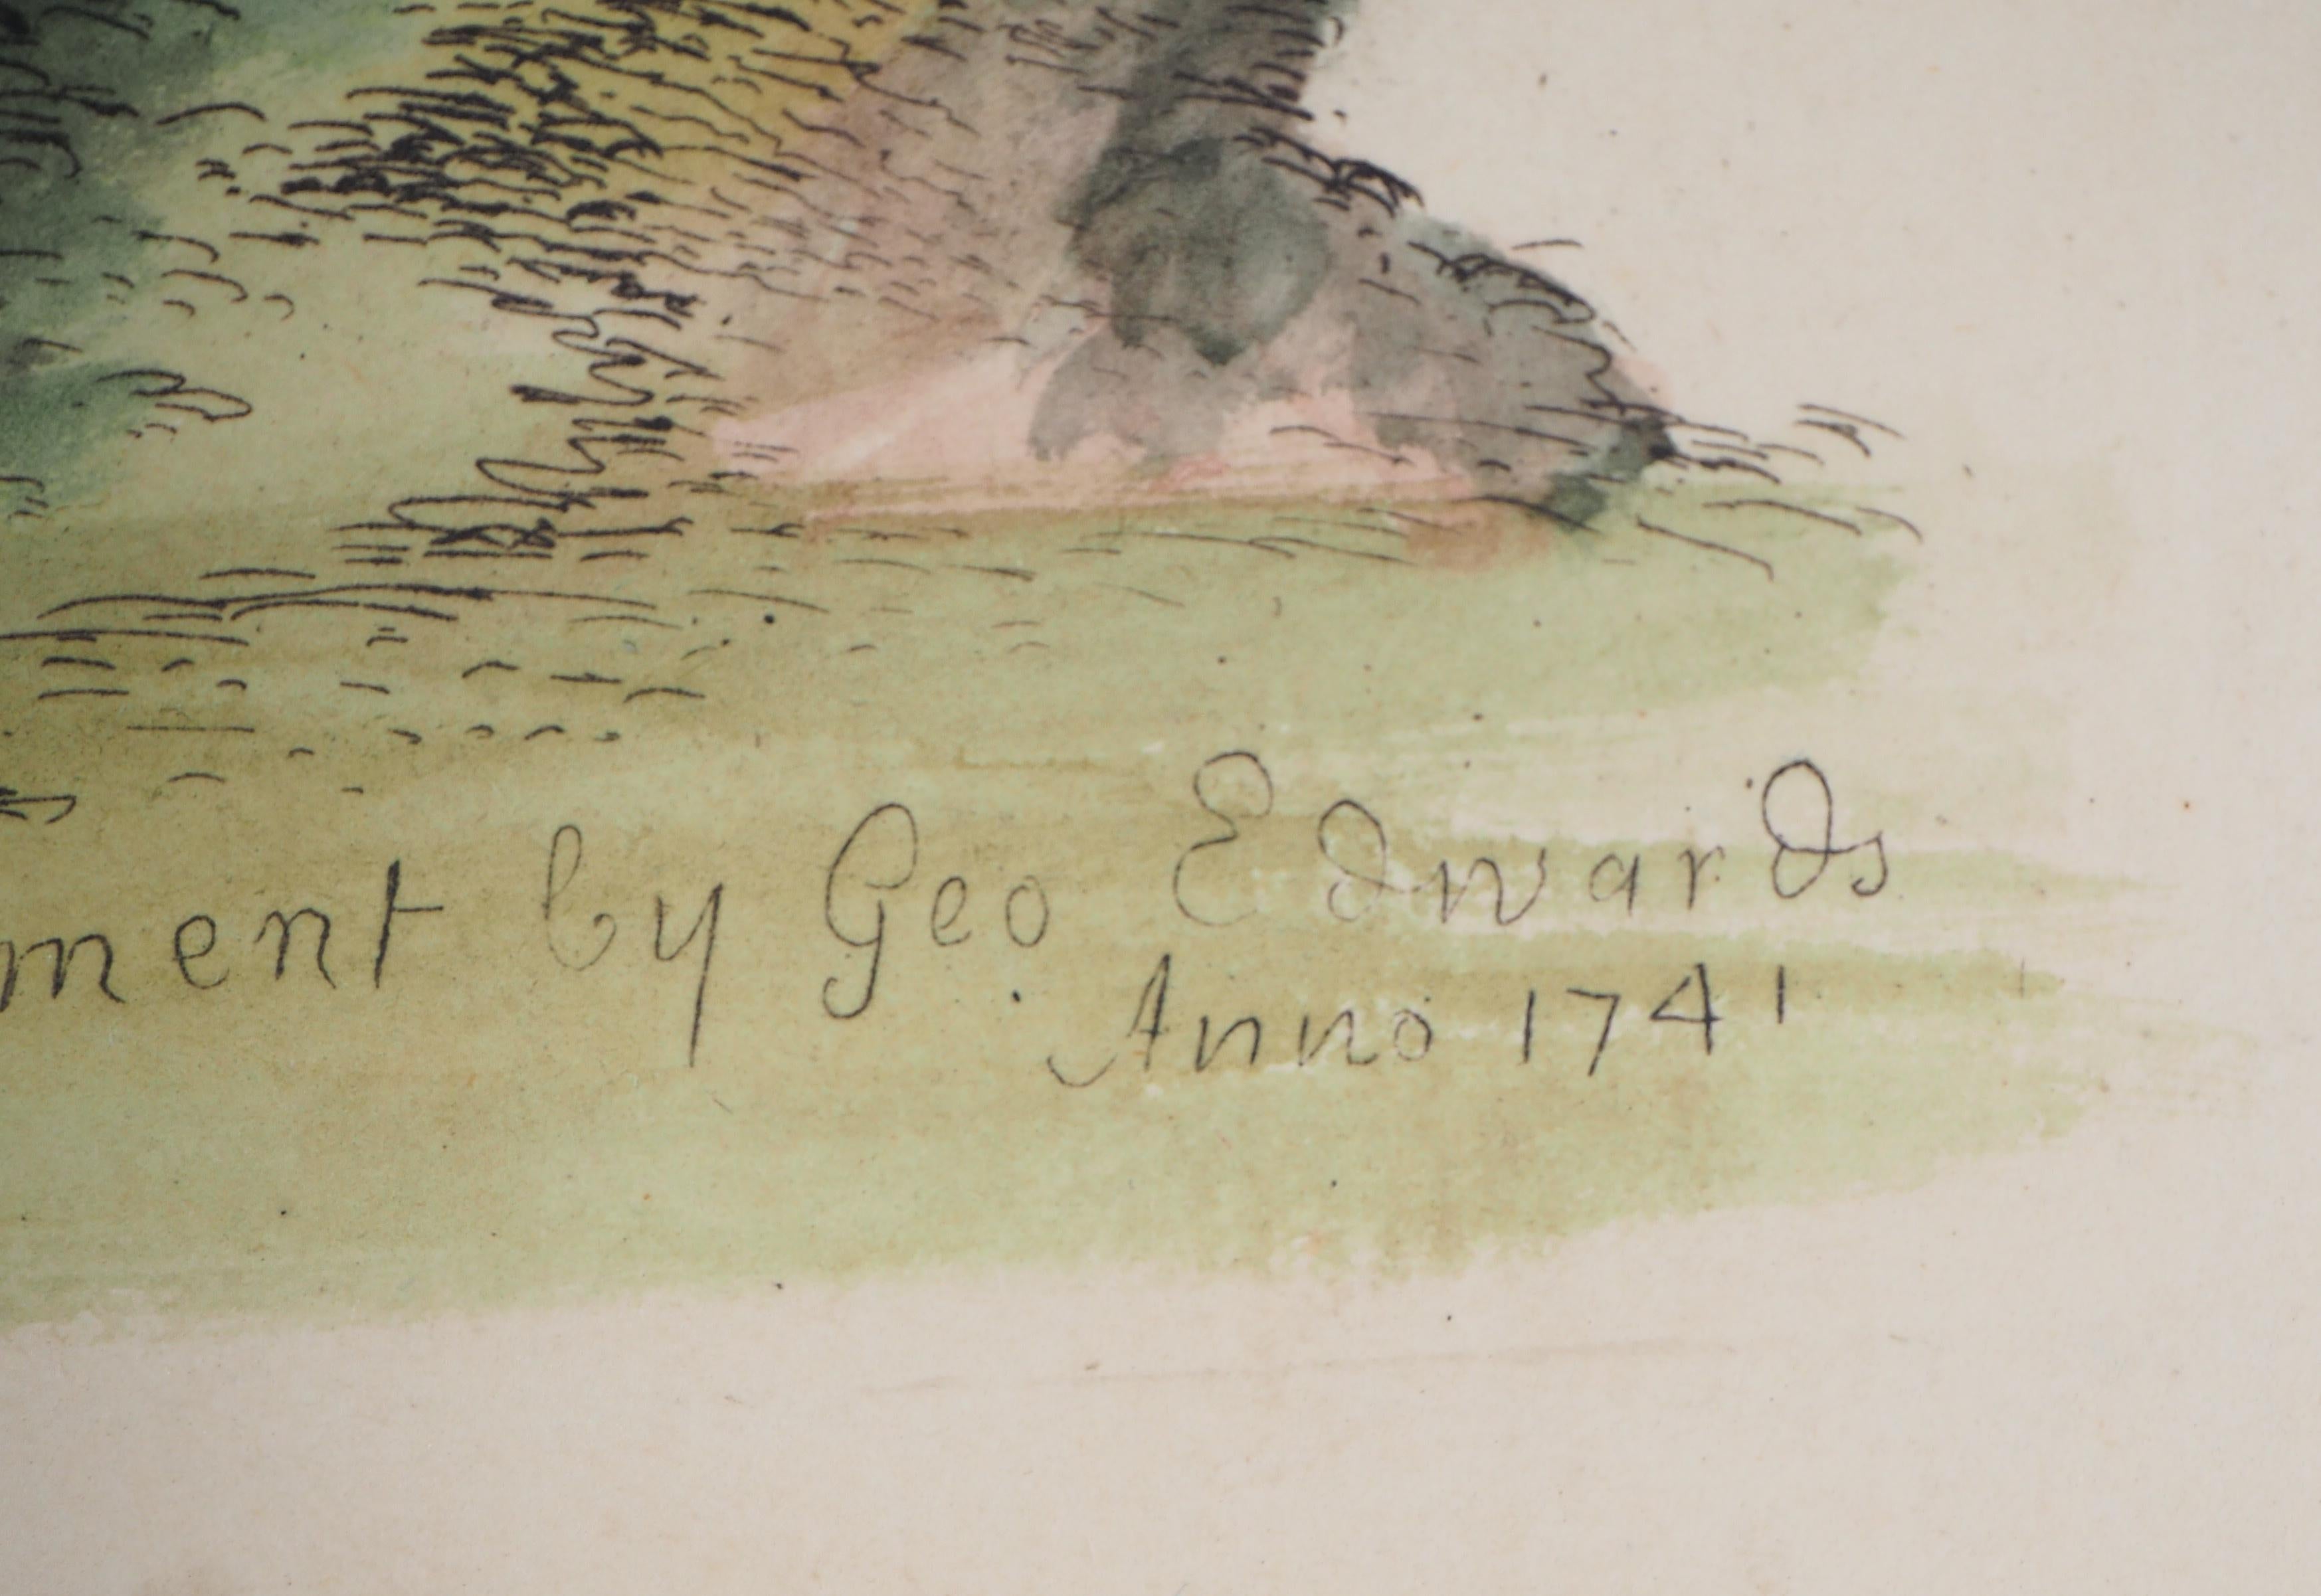 ment by Geo Edwards
Anno 1741